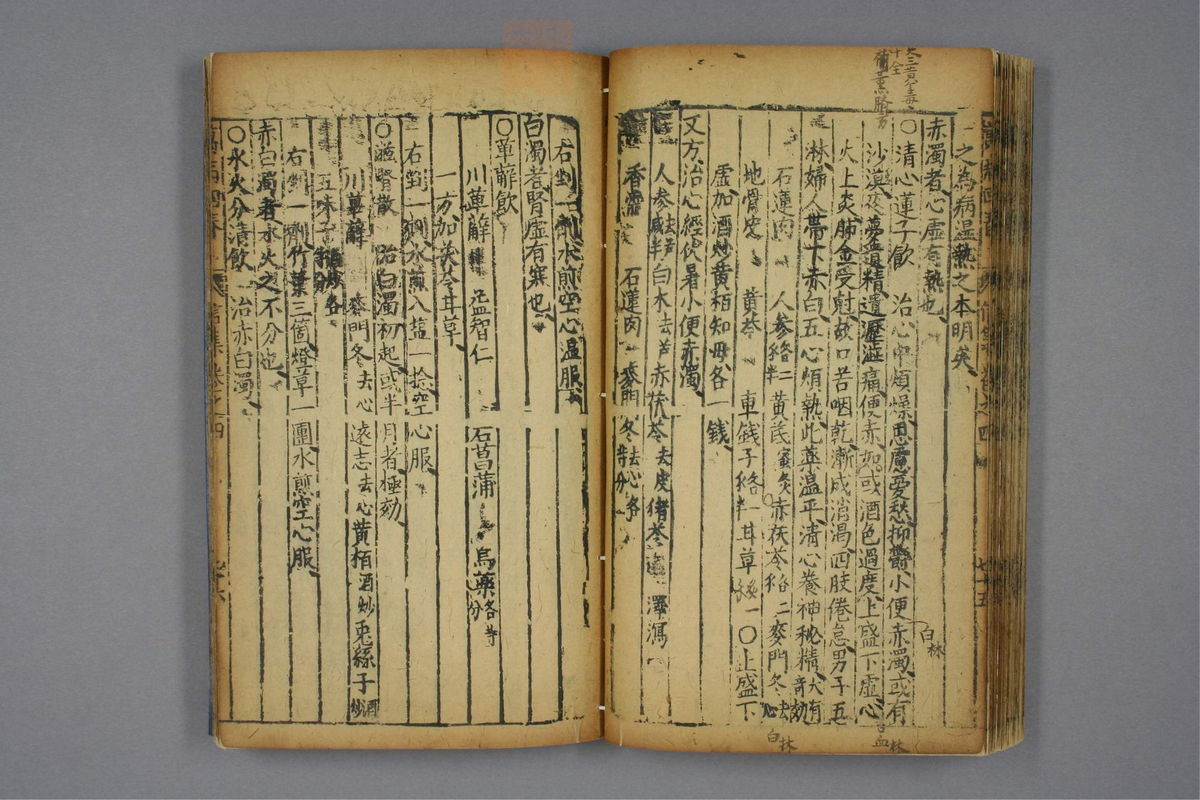 之為病濕熱之本明矣
赤濁者心虛有熱也
○清心蓮子飲 治心中煩燥思慮憂愁抑鬱小便赤濁或有
沙漠夜夢遺精遺瀝澁痛便赤如或酒色過度上盛下虛心
火上炎肺金受尅故口苦咽乾漸成消渴四肢倦怠男子五
淋婦人帶下赤白五心煩熱此藥温平清心養神秘精大有奇効
石蓮肉 人參各二半 黃芪蜜炙 赤茯苓各二 麥門冬去心
地骨皮 黃芩 車錢子各一半 甘草 一○上盛下
虛加酒炒黃栢知毋各一錢
又方治心經伏暑小便赤濁
人參去芦減半 白朮去芦 赤茯苓去皮 猪苓 澤瀉
香薷 石蓮肉 麥門冬去心各等分
右剉一劑水煎空心温服
白濁者腎虛有寒也
○萆薢飲
川萆薢 益智仁 石菖蒲 烏藥各等分
一方加茯苓甘草
右剉一劑水煎入塩一捻空心服
○滋腎散 治白濁初起或半月者極効
川萆薢 麥門冬去心 遠志去心 黃栢酒炒 兎絲子酒炒
五味子酒炒各等分
右剉一劑竹葉三箇燈草一團水煎空心服
赤白濁者水火之不分也
○水火分清飲 治赤白濁
白林